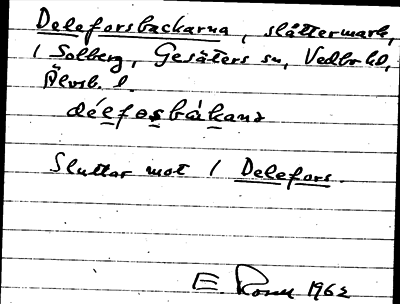 Deleforsbackarna, slåttermark,
1 Solberg, Gesäters sn, Vedbo hd,
Älvsb. l.
délfosbàkanɘ
Sluttar mot 1 Delefors.
E. Rosell 1962